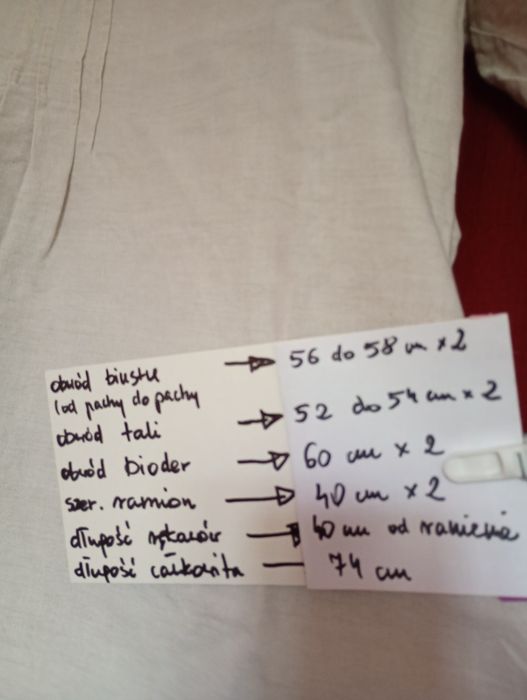 obwód biustu → 56 do 58 cm x 2
(od pachy do pachy
obwód tali → 52 do 54 cm x 2
obwód bioder → 60 cm x 2
szer. ramion → 40 cm x 2
długość rękawów → 40 cm od ramienia
długość całkowita — 74 cm